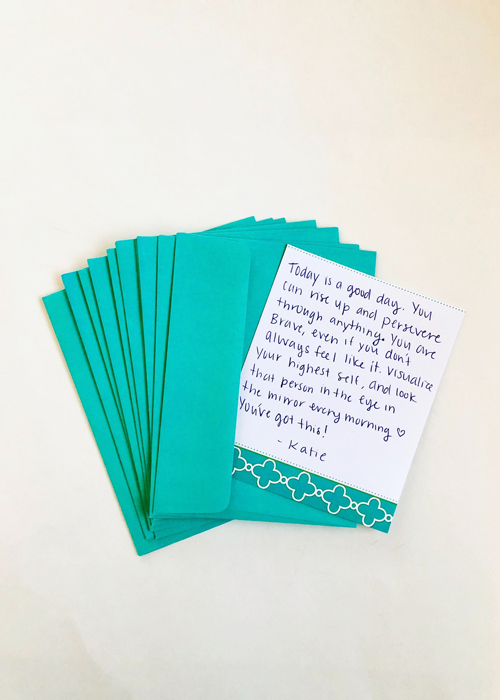 Today is a good day. You
can rise up and persevere
through anything. You are
Brave, even if you don't
always feel like it. Visualize
your highest self, and look
that person in the eye in
the mirror every morning ♡
You've got this!
- Katie